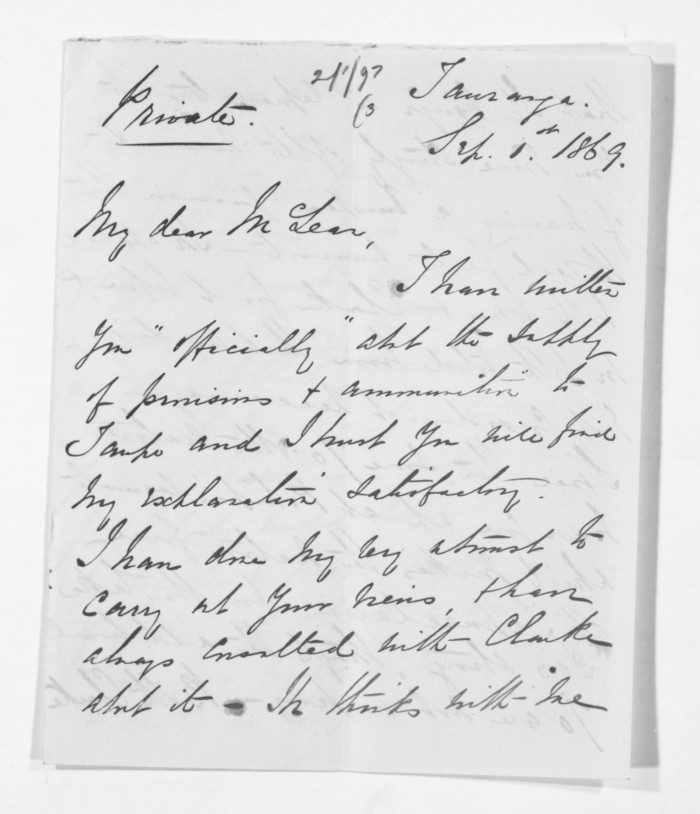 21/1/97
(3
Private.
Tauranga.
Sep. 1.st 1869.
My dear McLean,
I have written
you "officially" abt the supply
of provisions & ammunition to
Taupo and I trust you will find
my explanation satisfactory.
I have done my very utmost to
carry out your views, & have
always consulted with Clarke
abt it - He thinks with me